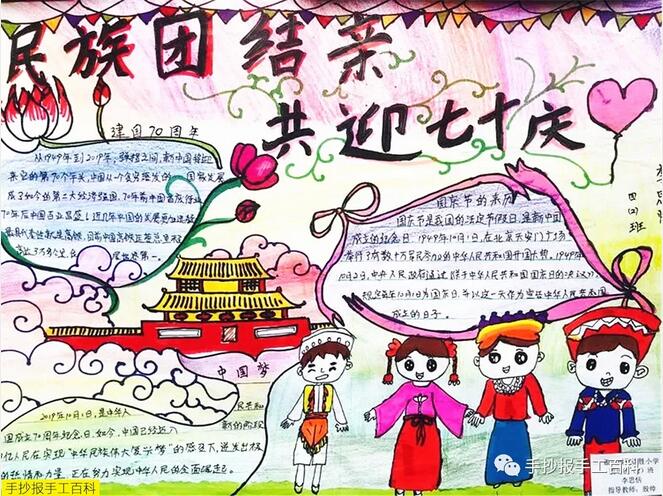 民族团结亲
共迎七十庆
建国70周年
从1949年到2019年,
来它的第70个年头,中国从一个贫穷落后的国家发展
成了如今的第二大经济强国。70年前中国
70年后中国
国庆节的来历
国庆节是我国的法定节假日,是新中国
成立的纪念日,1949年10月1日,在北京天安门广场
举行了有数十万军民参加的中华人民共和国开国大典。1949年
10月2日,中央人民政府通过《关于中华人民共和国国庆日的决议》,
规定每年10月1日为国庆日,并以这一天作为宣告中华人民共和国
成立的日子。
四(2)班
中国梦
2019年10月1日,是中华人民共和
国成立70周年纪念日,如今,中国已经进入新的阶段
亿人民在实现"中华民族伟大复兴梦"的感召下,迸发出极
的热情和力量,正在努力实现中华人民的全面崛起。
小学
班
李思恬
指导教师:殷帅
手抄报手工百科
手抄报手工百科